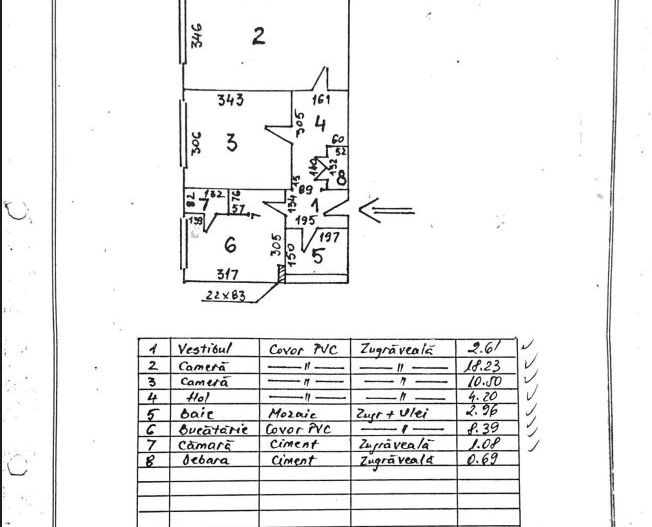 346
2
343
161
305
4
306
3
60
52
140
152
8
15
89
82
132
7
76
57
134
1
195
138
6
305
150
197
5
317
22x83
1 Vestibul Covor PVC Zugrăveală 2.61
2 Cameră —"— —"— 18.23
3 Cameră —"— —"— 10.50
4 Hol —"— —"— 4.20
5 Baie Mozaic Zugr + Ulei 2.96
6 Bucătărie Covor PVC —"— 8.39
7 Cămară Ciment Zugrăveală 1.08
8 Debara Ciment Zugrăveală 0.69